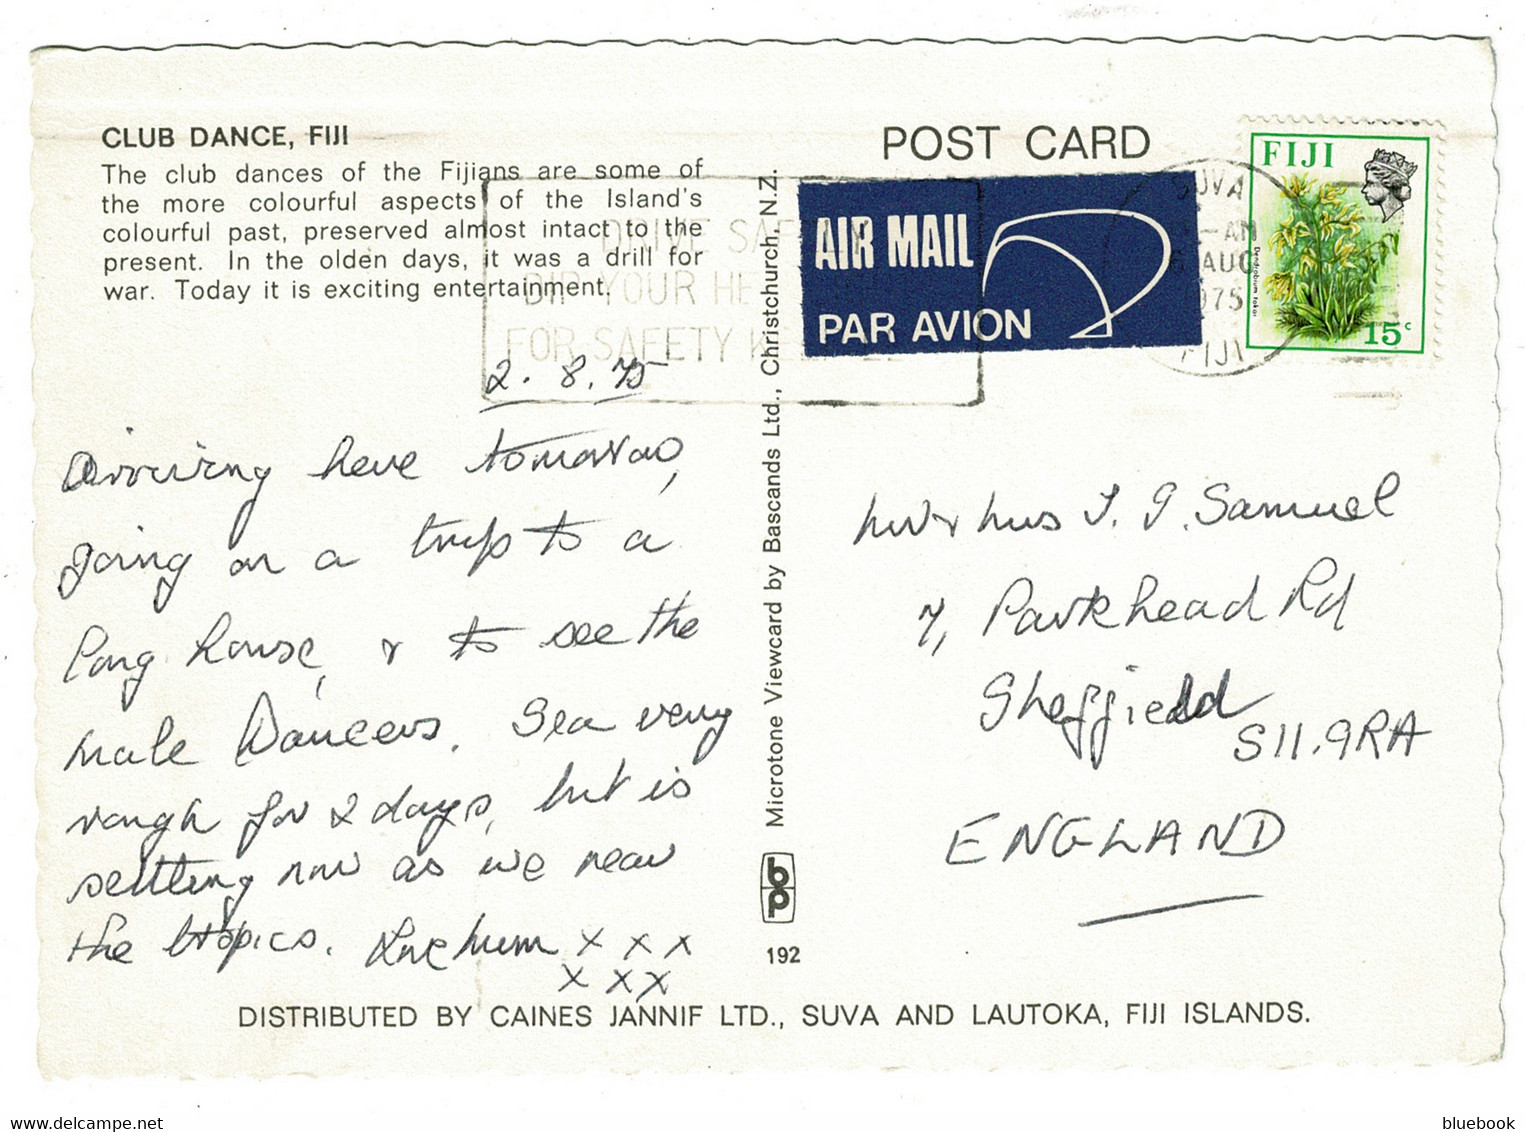 CLUB DANCE, FIJI
The club dances of the Fijians are some of
the more colourful aspects of the Island's
colourful past, preserved almost intact to the
present. In the olden days, it was a drill for
war. Today it is exciting entertainment.
2.8.75
Arriving here tomorrow,
going on a trip to a
long house, & to see the
male Dancers. Sea very
rough for 2 days, but is
settling now as we near
the tropics. Love Mum x x x
x x x
Microtone Viewcard by Bascands Ltd., Christchurch, N.Z.
bp
192
POST CARD
AIR MAIL
PAR AVION
DRIVE SAFELY
DIP YOUR HE
FOR SAFETY K
SUVA
-AM
AUG
1975
FIJI
FIJI
Dendrobium tokai
15c
Mr & Mrs I. G. Samuel
7, Parkhead Rd
Sheffield
S11.9RA
ENGLAND
DISTRIBUTED BY CAINES JANNIF LTD., SUVA AND LAUTOKA, FIJI ISLANDS.
bluebook